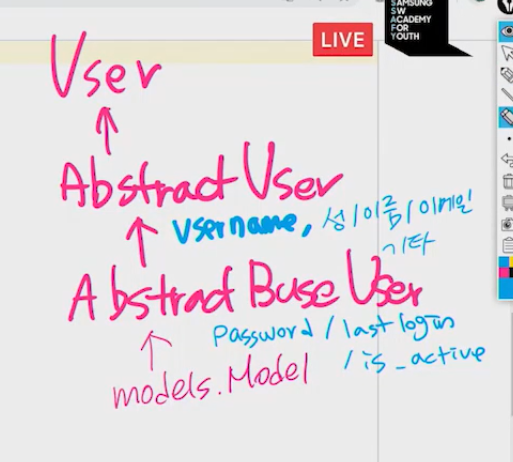 LIVE
SAMSUNG
SW
ACADEMY
FOR
YOUTH
User
Abstract User
username, 성/이름/이메일
기타
Abstract Base User
Password / last login
/ is_active
models.Model